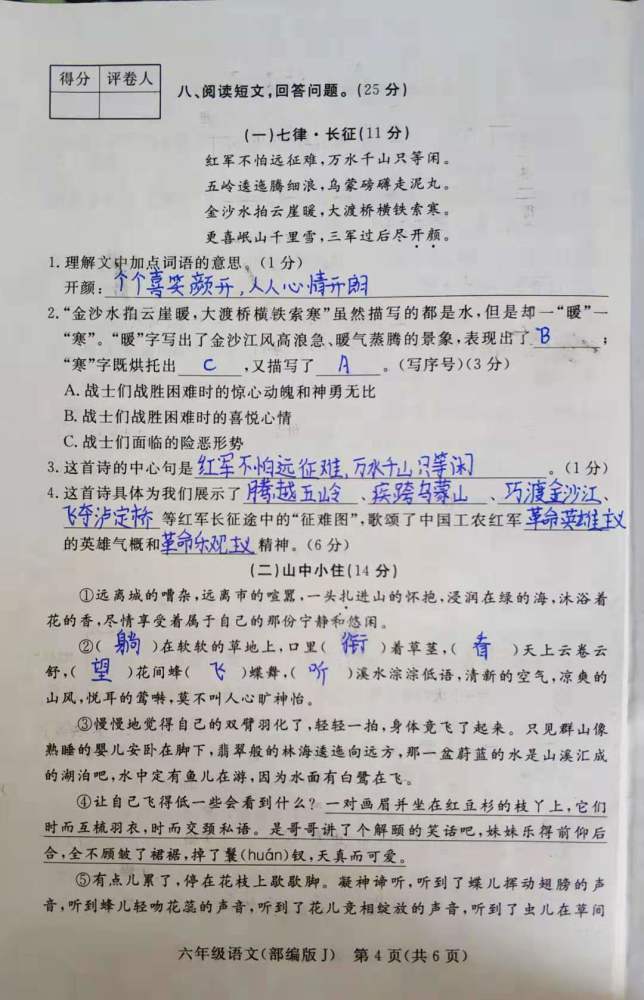 得分 评卷人
八、阅读短文,回答问题。(25分)
(一)七律·长征(11分)
红军不怕远征难,万水千山只等闲。
五岭逶迤腾细浪,乌蒙磅礴走泥丸。
金沙水拍云崖暖,大渡桥横铁索寒。
更喜岷山千里雪,三军过后尽开颜。
1.理解文中加点词语的意思。(1分)
开颜:个个喜笑颜开,人人心情开朗
2.“金沙水拍云崖暖,大渡桥横铁索寒”虽然描写的都是水,但是却一“暖”一
“寒”。“暖”字写出了金沙江风高浪急、暖气蒸腾的景象,表现出了 B ;
“寒”字既烘托出 C ,又描写了 A 。(写序号)(3分)
A.战士们战胜困难时的惊心动魄和神勇无比
B.战士们战胜困难时的喜悦心情
C.战士们面临的险恶形势
3.这首诗的中心句是 红军不怕远征难,万水千山只等闲 。(1分)
4.这首诗具体为我们展示了 腾越五岭 、 疾跨乌蒙山 、 巧渡金沙江 、
飞夺泸定桥 等红军长征途中的“征难图”,歌颂了中国工农红军 革命英雄主义
的英雄气概和 革命乐观主义 精神。(6分)
(二)山中小住(14分)
①远离城的嘈杂,远离市的喧嚣,一头扎进山的怀抱,浸润在绿的海,沐浴着
花的香,尽情享受着属于自己的那份宁静和悠闲。
②( 躺 )在软软的草地上,口里( 衔 )着草茎,( 看 )天上云卷云
舒,( 望 )花间蜂( 飞 )蝶舞,( 听 )溪水淙淙低语,清新的空气,凉爽的
山风,悦耳的莺啭,莫不叫人心旷神怡。
③慢慢地觉得自己的双臂羽化了,轻轻一拍,身体竟飞了起来。只见群山像
熟睡的婴儿安卧在脚下,翡翠般的林海逶迤向远方,那一盆蔚蓝的水是山溪汇成
的湖泊吧,水中定有鱼儿在游,因为水面有白鹭在飞。
④让自己飞得低一些会看到什么?一对画眉并坐在红豆杉的枝丫上,它们
时而互梳羽衣,时而交颈私语。是哥哥讲了个解颐的笑话吧,妹妹乐得前仰后
合,全不顾皱了裙裾,掉了鬟(huán)钗,天真而可爱。
⑤有点儿累了,停在花枝上歇歇脚。凝神谛听,听到了蝶儿挥动翅膀的声
音,听到蜂儿轻吻花蕊的声音,听到了花儿竞相绽放的声音,听到了虫儿在草间
六年级语文(部编版J) 第4页(共6页)